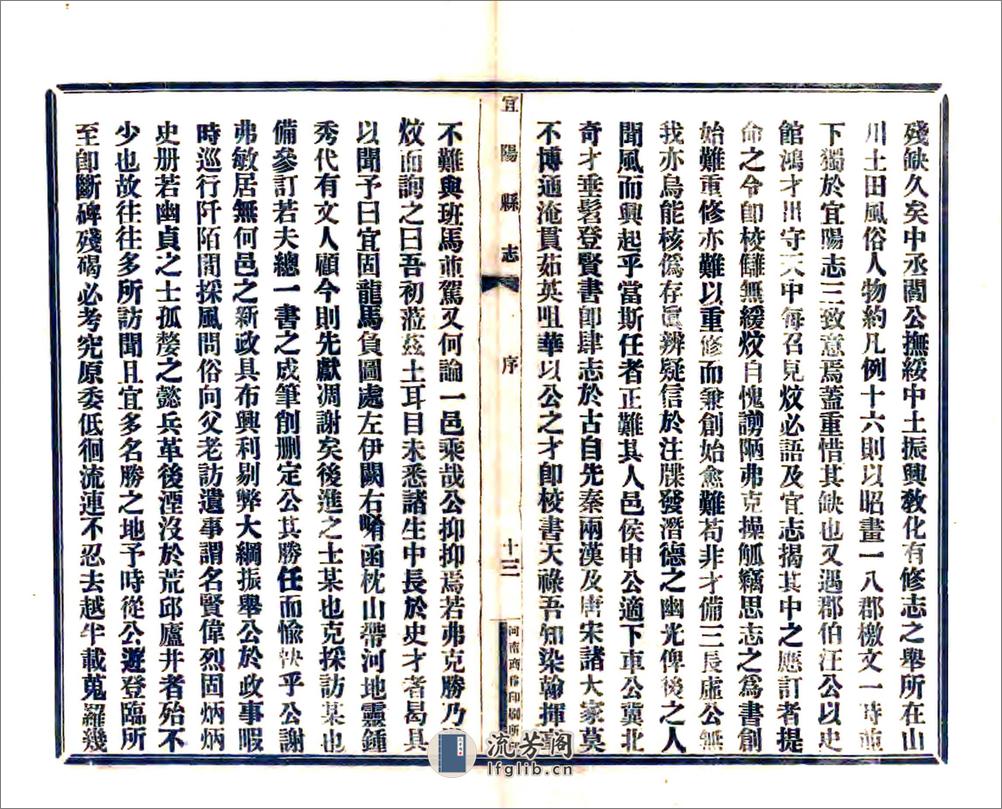 殘缺久矣中丞閻公撫綏中土振興敎化有修志之舉所在山
川土田風俗人物約凡例十六則以昭畫一八郡檄文一時並
下獨於宜陽志三致意焉蓋重惜其缺也又遇郡伯汪公以史
館鴻才出守天中每召見炆必語及宜志揭其中之應訂者提
命之令卽校讎無緩炆自愧謭陋弗克操觚竊思志之爲書創
始難重修亦難以重修而兼創始愈難苟非才備三長虛公無
我亦烏能核僞存眞辨疑信於注牒發潛德之幽光俾後之人
聞風而興起乎當斯任者正難其人邑侯申公適下車公冀北
奇才垂髫登賢書卽肆志於古自先秦兩漢及唐宋諸大家莫
不博通淹貫茹英咀華以公之才卽校書天祿吾知染翰揮
宜陽縣志 序 十三 河南商務印刷所
不難與班馬並駕又何論一邑乘哉公抑抑焉若弗克勝乃
炆而詢之曰吾初蒞茲土耳目未悉諸生中長於史才者曷具
以聞予曰宜固龍馬負圖處左伊闕右崤函枕山帶河地靈鍾
秀代有文人顧今則先獻凋謝矣後進之士某也克採訪某也
備參訂若夫總一書之成筆削刪定公其勝任而愉快乎公謝
弗敏居無何邑之新政具布興利剔弊大綱振舉公於政事暇
時巡行阡陌間採風問俗向父老訪遺事謂名賢偉烈固炳炳
史册若幽貞之士孤嫠之懿兵革後湮沒於荒邱廬井者殆不
少也故往往多所訪聞且宜多名勝之地予時從公遊登臨所
至卽斷碑殘碣必考究原委低徊流連不忍去越半載蒐羅幾
流芳阁
lfglib.cn